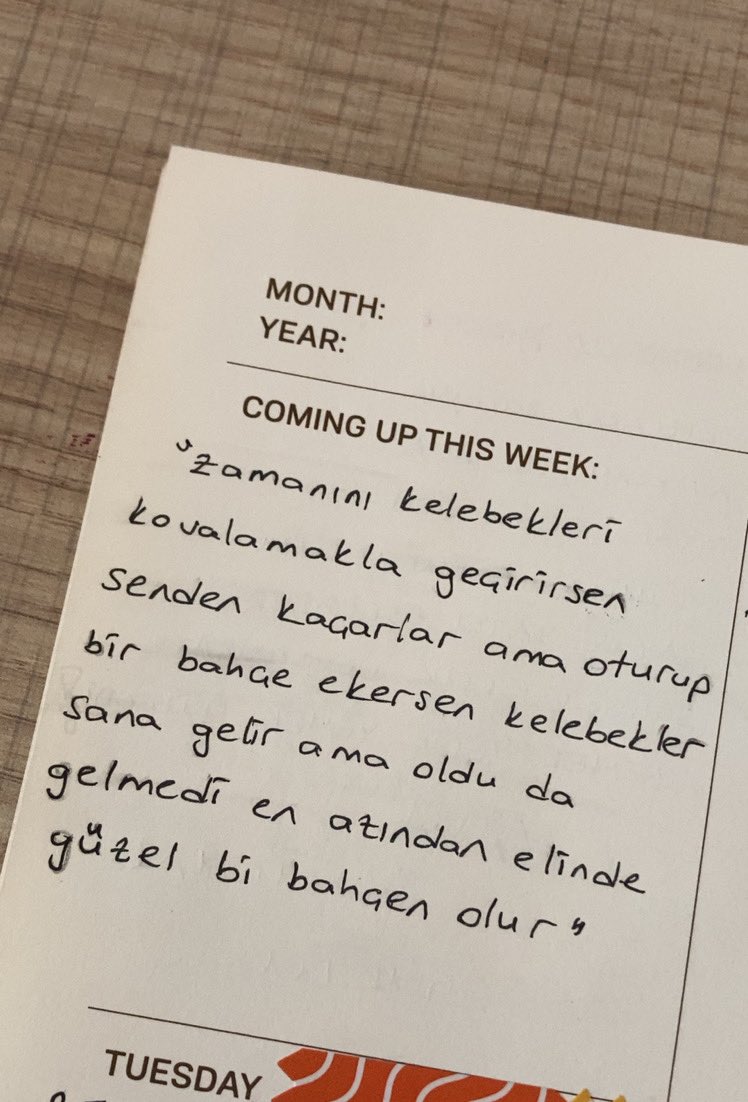 MONTH:
YEAR:
COMING UP THIS WEEK:
"zamanını kelebekleri
kovalamakla geçirirsen
senden kaçarlar ama oturup
bir bahçe ekersen kelebekler
sana gelir ama oldu da
gelmedi en azından elinde
güzel bi bahçen olur"
TUESDAY